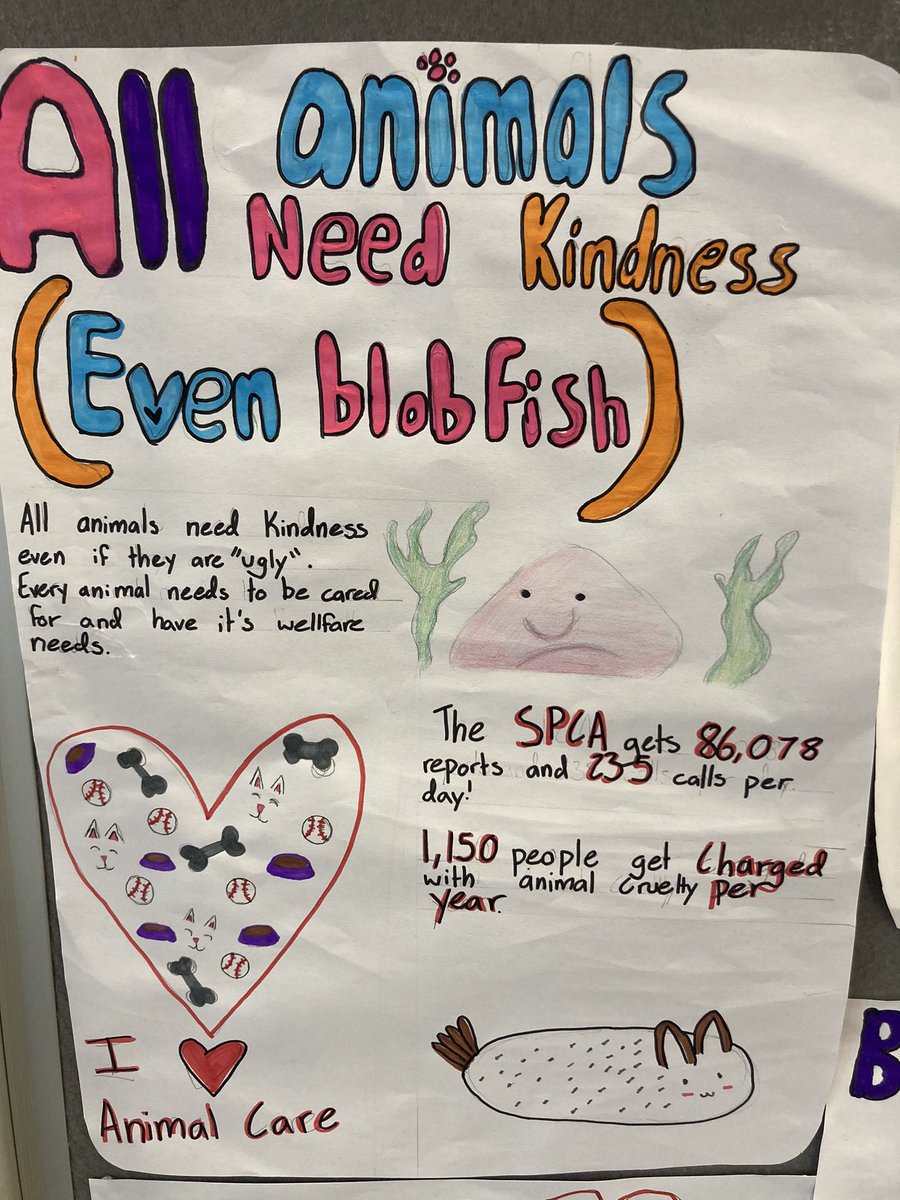 All animals
Need Kindness
(Even blobfish)
All animals need Kindness
even if they are "ugly".
Every animal needs to be cared
for and have it's wellfare
needs.
The SPCA gets 86,078
reports and 235 calls per
day!
1,150 people get Charged
with animal cruelty per
year.
I
Animal Care
B